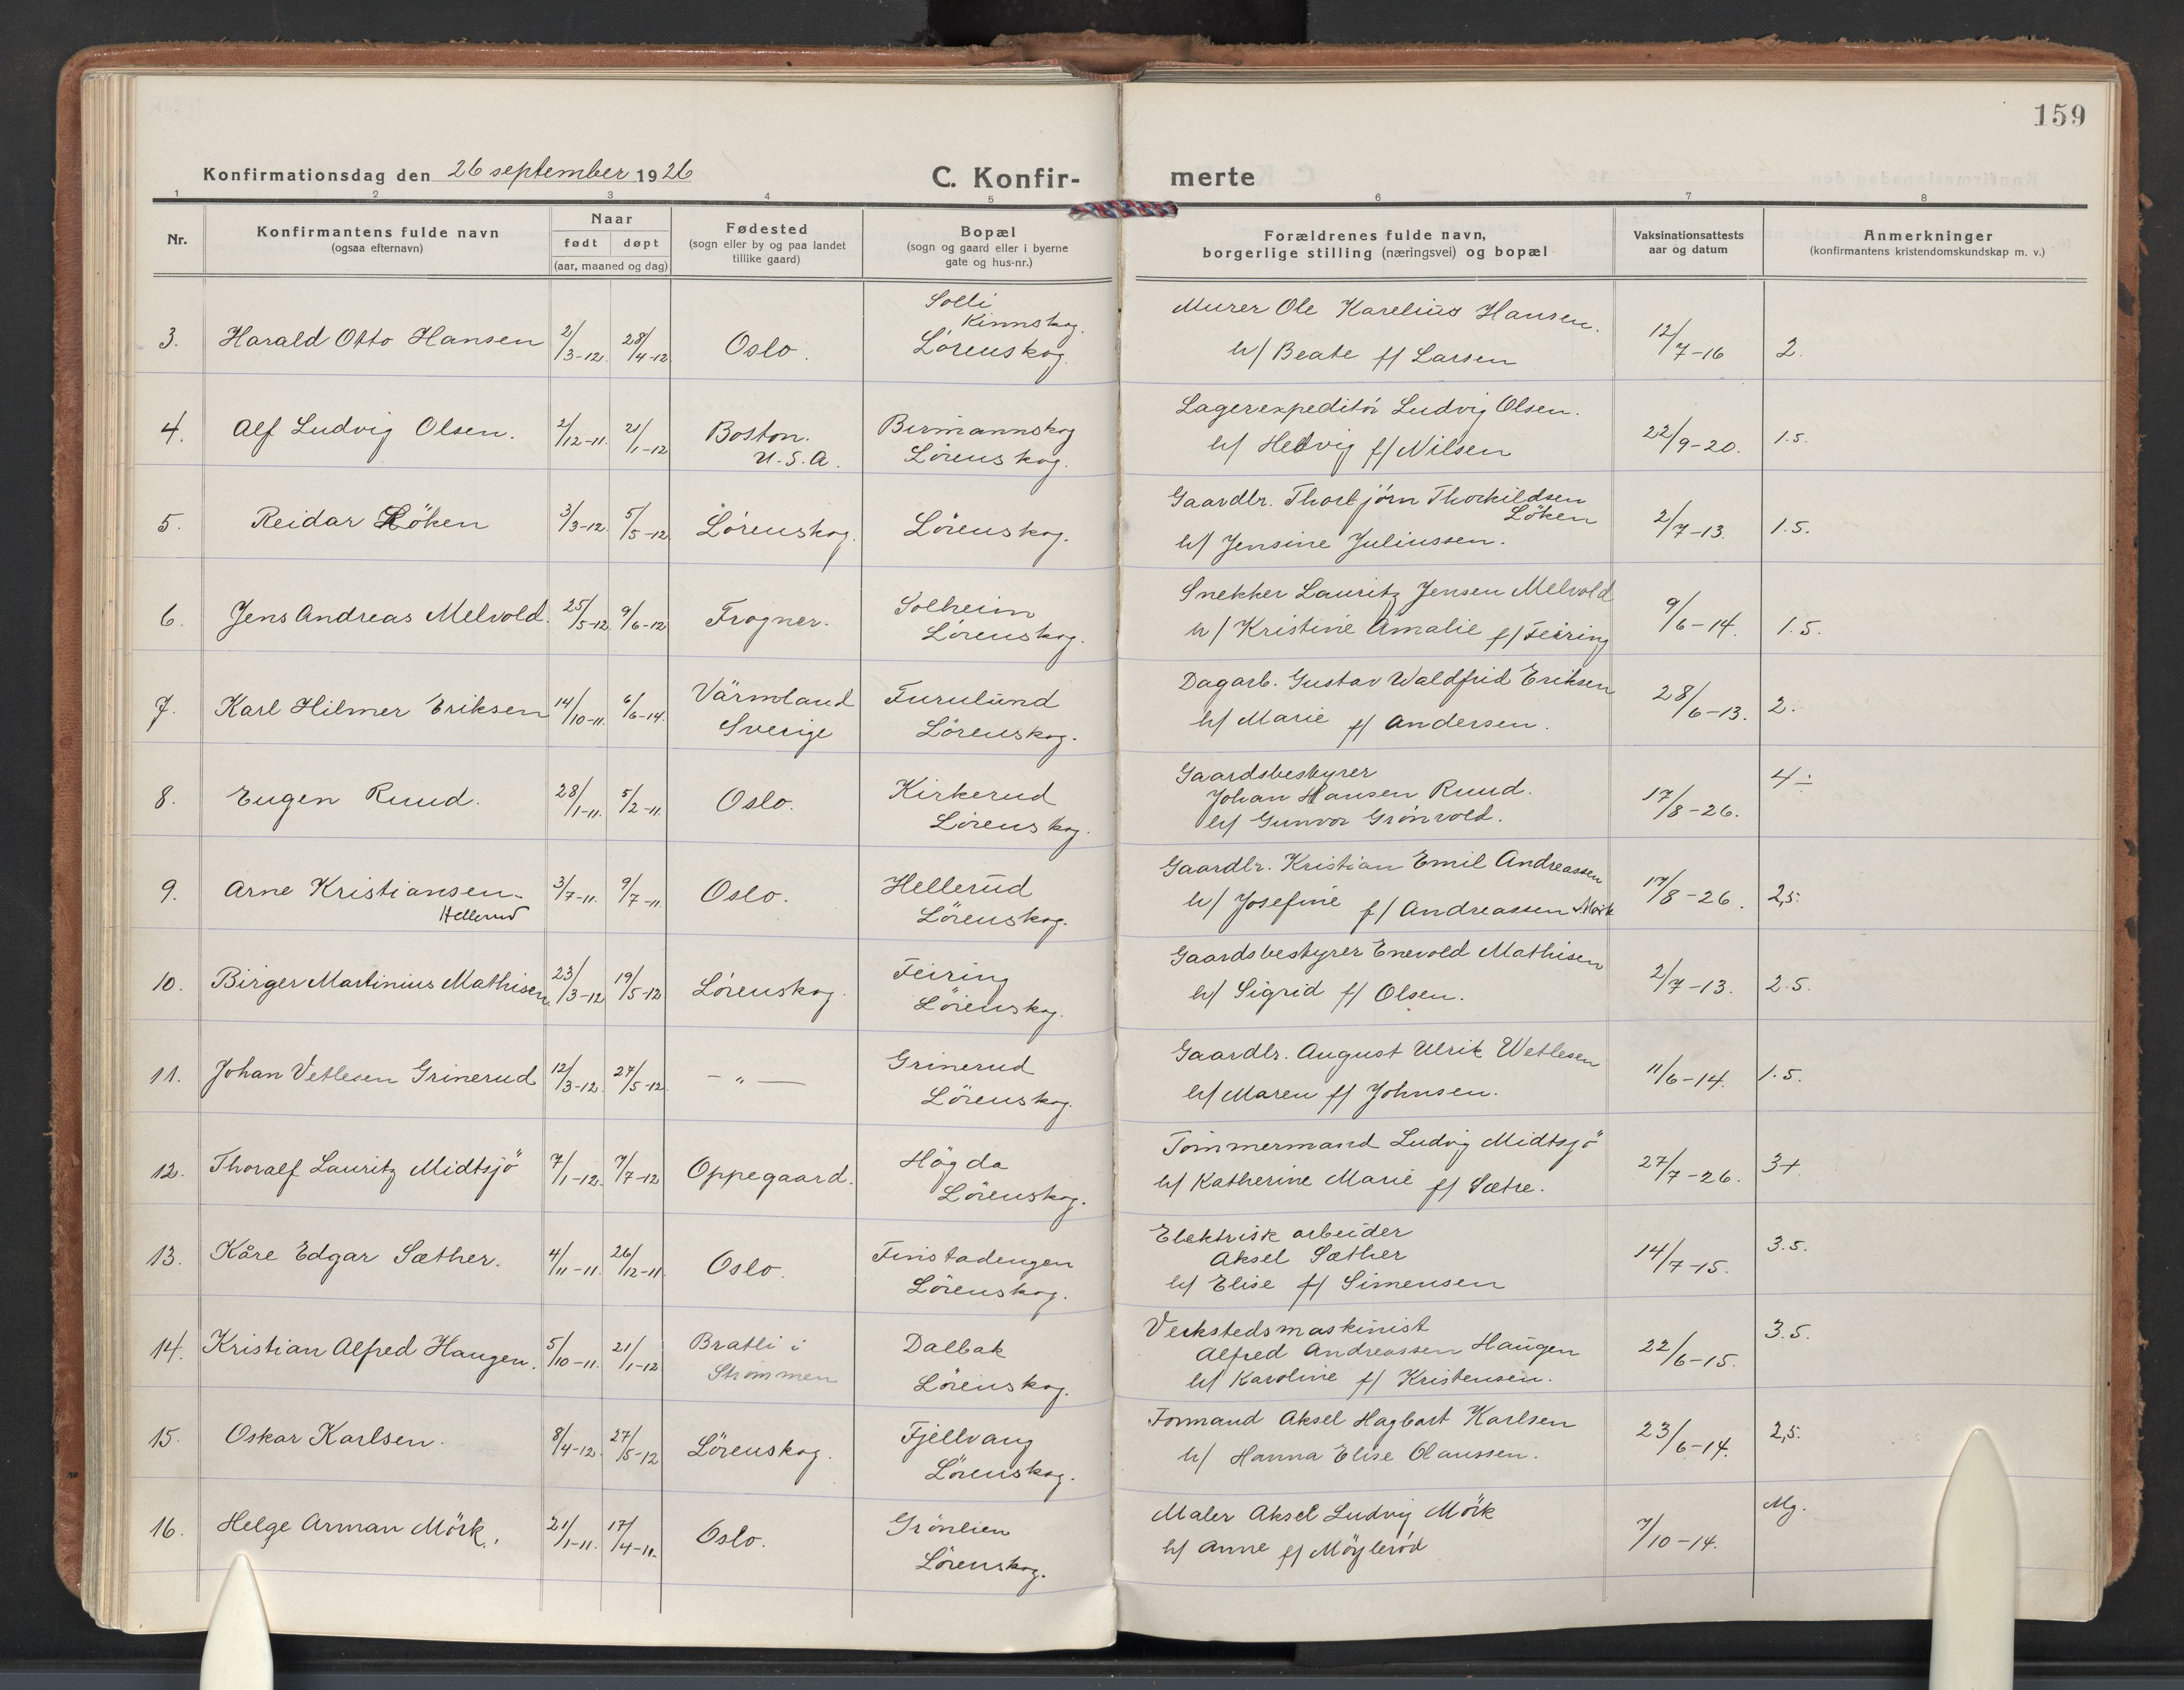 159
Konfirmationsdag den 26 september 1926
C. Konfir- merte
1 2 3 4 5 6 7 8
Nr.
Konfirmantens fulde navn
(ogsaa efternavn)
Naar
født døpt
(aar, maaned og dag)
Fødested
(sogn eller by og paa landet
tillike gaard)
Bopæl
(sogn og gaard eller i byerne
gate og hus-nr.)
Forældrenes fulde navn,
borgerlige stilling (næringsvei) og bopæl
Vaksinationsattests
aar og datum
Anmerkninger
(konfirmantens kristendomskundskap m. v.)
3. Harald Otto Hansen 2/3-12. 28/4-12 Oslo.
Solli
Kinnskog.
Lörenskog.
Murer Ole Karelius Hansen.
h/ Beate f/ Larsen
12/7-16 2.
4. Alf Ludvig Olsen. 2/12-11. 21/1-12
Boston.
U.S.A.
Birmannskog
Lörenskog.
Lagerexpeditör Ludvig Olsen.
h/ Hedvig f/ Nilsen
22/9-20. 1.5.
5. Reidar Löken 3/3-12. 5/5-12 Lörenskog. Lörenskog.
Gaardbr. Thorbjörn Thorkildsen
Löken
h/ Jensine Juliussen.
2/7-13. 1.5.
6. Jens Andreas Melvold. 25/5-12 9/6-12 Frogner.
Solheim
Lörenskog.
Snekker Lauritz Jensen Melvold
h/ Kristine Amalie f/ Feiring
9/6-14. 1.5.
7. Karl Hilmer Eriksen 14/10-11. 6/6-14.
Värmland
Sverige
Furulund
Lörenskog.
Dagarb. Gustav Waldfrid Eriksen
h/ Marie f/ Andersen.
28/6-13. 2.
8. Eugen Ruud. 28/1-11. 5/2-11. Oslo.
Kirkerud
Lörenskog.
Gaardsbestyrer
Johan Hansen Ruud.
h/ Gunvor Grönvold.
17/8-26. 4÷
9. Arne Kristiansen-
Hellerud
3/7-11. 9/7-11 Oslo.
Hellerud
Lörenskog.
Gaardbr. Kristian Emil Andreassen
h/ Josefine f/ Andreassen Mörk
17/8-26. 2,5.
10. Birger Martinius Mathisen 23/3-12 19/5-12 Lörenskog.
Feiring
Lörenskog.
Gaardsbestyrer Enevold Mathisen
h/ Sigrid f/ Olsen.
2/7-13. 2.5.
11. Johan Vetlesen Grinerud 12/3-12. 27/5-12. — „ —
Grinerud
Lörenskog.
Gaardbr. August Ulrik Wetlesen
h/ Maren f/ Johnsen.
11/6-14. 1.5.
12. Thoralf Lauritz Midtsjö 7/1-12. 7/7-12 Oppegaard.
Högda
Lörenskog.
Tömmermand Ludvig Midtsjö
h/ Katherine Marie f/ Sætre.
27/7-26. 3+
13. Kåre Edgar Sæther. 4/11-11. 26/12-11. Oslo.
Finstadengen
Lörenskog.
Elektrisk arbeider
Aksel Sæther
h/ Elise f/ Simensen
14/7-15. 3.5.
14. Kristian Alfred Haugen. 5/10-11. 21/1-12
Bratli i
Strömmen
Dalbak
Lörenskog.
Verkstedsmaskinist
Alfred Andreassen Haugen
h/ Karoline f/ Kristensen.
22/6-15. 3.5.
15. Oskar Karlsen. 8/4-12. 27/5-12 Lörenskog.
Fjellvang
Lörenskog.
Formand Aksel Hagbart Karlsen
h/ Hanna Elise Olaussen.
23/6-14. 2,5.
16. Helge Arman Mörk. 21/1-11. 17/4-11. Oslo.
Grönlien
Lörenskog.
Maler Aksel Ludvig Mörk
h/ Anne f/ Möyleröd
7/10-14. Mg.